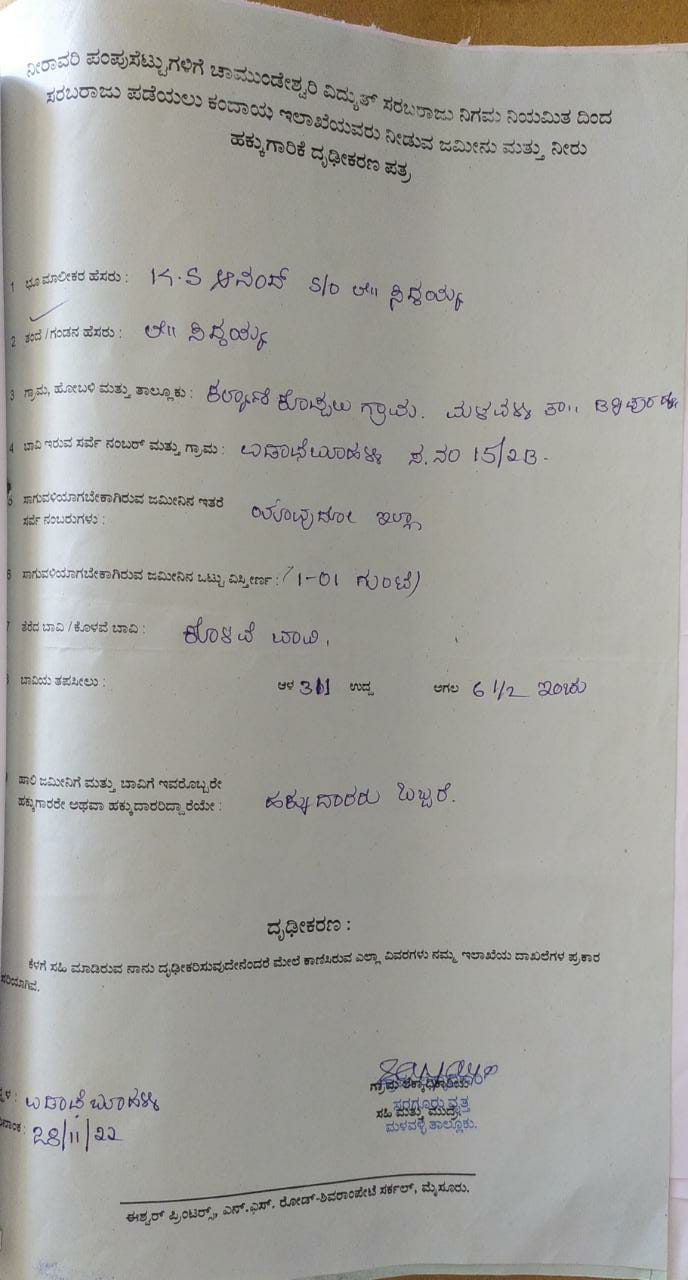 ನೀರಾವರಿ ಪಂಪುಸೆಟ್ಟುಗಳಿಗೆ ಚಾಮುಂಡೇಶ್ವರಿ ವಿದ್ಯುತ್ ಸರಬರಾಜು ನಿಗಮ ನಿಯಮಿತ ದಿಂದ
ಸರಬರಾಜು ಪಡೆಯಲು ಕಂದಾಯ ಇಲಾಖೆಯವರು ನೀಡುವ ಜಮೀನು ಮತ್ತು ನೀರು
ಹಕ್ಕುಗಾರಿಕೆ ದೃಢೀಕರಣ ಪತ್ರ
1 ಭೂ ಮಾಲೀಕರ ಹೆಸರು : K.S ಆನಂದ್ S/O ಲೇ|| ಸಿದ್ದಯ್ಯ
2 ತಂದೆ / ಗಂಡನ ಹೆಸರು : ಲೇ|| ಸಿದ್ದಯ್ಯ
3 ಗ್ರಾಮ, ಹೋಬಳಿ ಮತ್ತು ತಾಲ್ಲೂಕು : ಕಲ್ಯಾಣಿ ಕೊಪ್ಪಲು ಗ್ರಾಮ. ಮಳವಳ್ಳಿ ತಾ||
4 ಬಾವಿ ಇರುವ ಸರ್ವೆ ನಂಬರ್ ಮತ್ತು ಗ್ರಾಮ : ಸ.ನಂ 15/2B-
5 ಸಾಗುವಳಿಯಾಗಬೇಕಾಗಿರುವ ಜಮೀನಿನ ಇತರೆ
ಸರ್ವೆ ನಂಬರುಗಳು : ಯಾವುದೂ ಇಲ್ಲಾ
6 ಸಾಗುವಳಿಯಾಗಬೇಕಾಗಿರುವ ಜಮೀನಿನ ಒಟ್ಟು ವಿಸ್ತೀರ್ಣ : (1-01 ಗುಂಟೆ)
7 ತೆರೆದ ಬಾವಿ / ಕೊಳವೆ ಬಾವಿ : ಕೊಳವೆ ಬಾವಿ.
ಬಾವಿಯ ತಪಸೀಲು : ಆಳ ಉದ್ದ ಅಗಲ 6 1/2 ಇಂಚು
ಹಾಲಿ ಜಮೀನಿಗೆ ಮತ್ತು ಬಾವಿಗೆ ಇವರೊಬ್ಬರೇ
ಹಕ್ಕುಗಾರರೇ ಅಥವಾ ಹಕ್ಕುದಾರರಿದ್ದಾರೆಯೇ : ಹಕ್ಕುದಾರರು ಒಬ್ಬರೆ.
ದೃಢೀಕರಣ :
ಕೆಳಗೆ ಸಹಿ ಮಾಡಿರುವ ನಾನು ದೃಢೀಕರಿಸುವುದೇನೆಂದರೆ ಮೇಲೆ ಕಾಣಿಸಿರುವ ಎಲ್ಲಾ ವಿವರಗಳು ನಮ್ಮ ಇಲಾಖೆಯ ದಾಖಲೆಗಳ ಪ್ರಕಾರ
ಸರಿಯಾಗಿವೆ.
ಸರಗೂರು ವೃತ್ತ
ಸಹಿ ಮತ್ತು ಮುದ್ರೆ
ಮಳವಳ್ಳಿ ತಾಲ್ಲೂಕು.
28/11/22
ಈಶ್ವರ್ ಪ್ರಿಂಟರ್ಸ್, ಎನ್.ಎಸ್. ರೋಡ್-ಶಿವರಾಂಪೇಟೆ ಸರ್ಕಲ್, ಮೈಸೂರು.